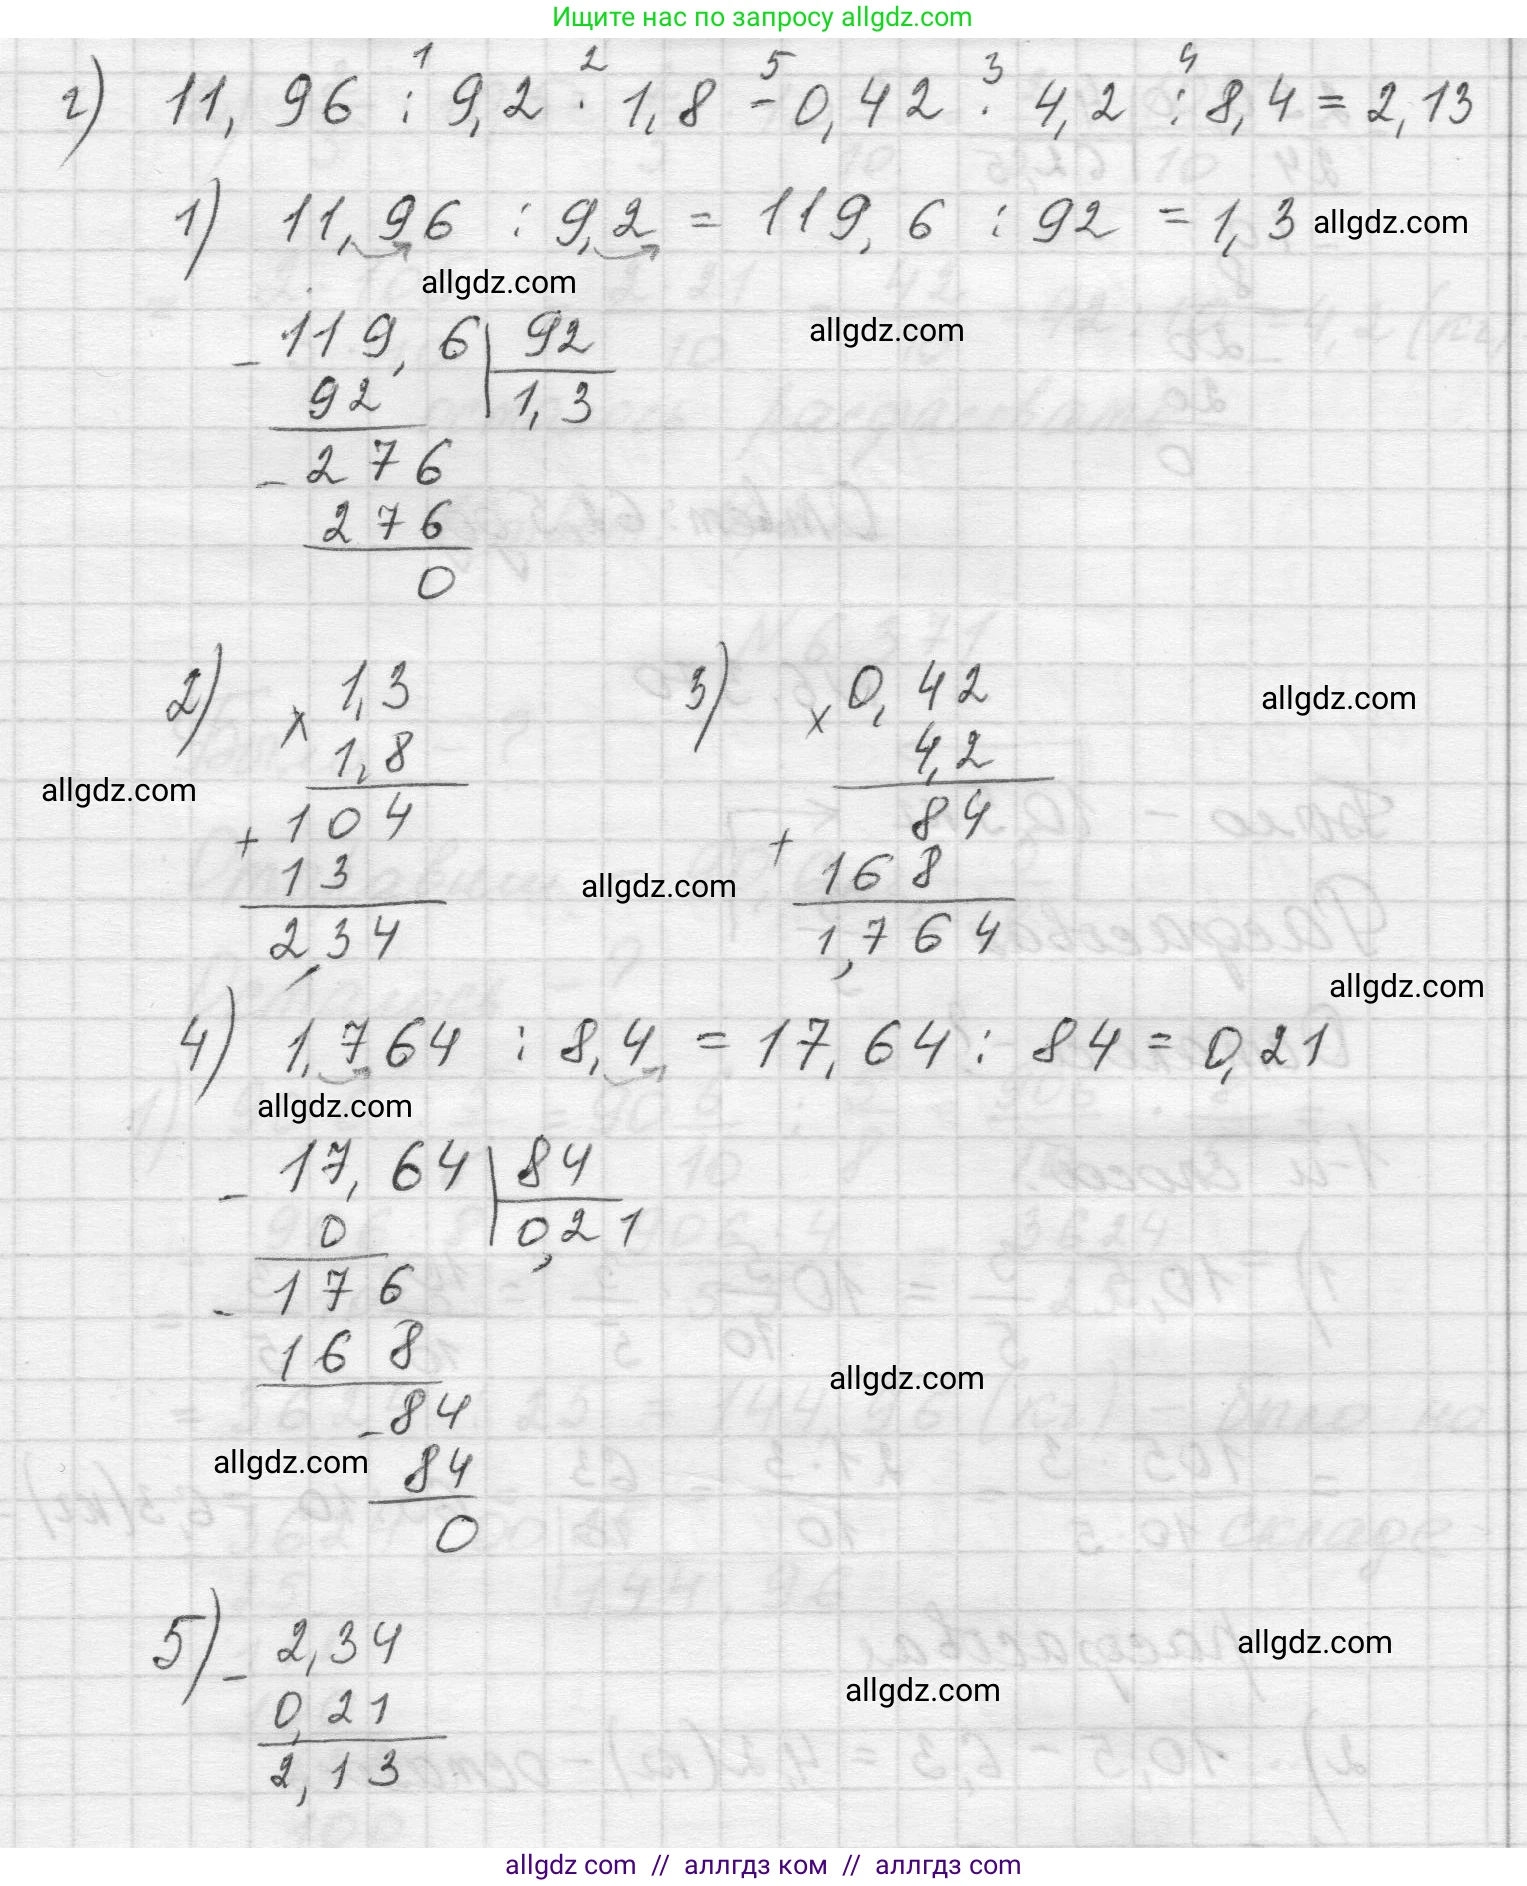 Ищите нас по запросу allgdz.com
1 2 5 3 4
г) 11,96 : 9,2 · 1,8 - 0,42 · 4,2 : 8,4 = 2,13
1) 11,96 : 9,2 = 119,6 : 92 = 1,3 allgdz.com
allgdz.com
allgdz.com
- 119,6 | 92
92 1,3
- 276
276
0
2) × 1,3 3) × 0,42 allgdz.com
1,8 4,2
allgdz.com
+ 104 + 84
13 168 allgdz.com
2,34 1,764
allgdz.com
4) 1,764 : 8,4 = 17,64 : 84 = 0,21
allgdz.com
- 17,64 | 84
0 0,21
- 176
168 allgdz.com
- 84
allgdz.com 84
0
5) - 2,34 allgdz.com
0,21 allgdz.com
2,13
allgdz com // аллгдз ком // аллгдз com